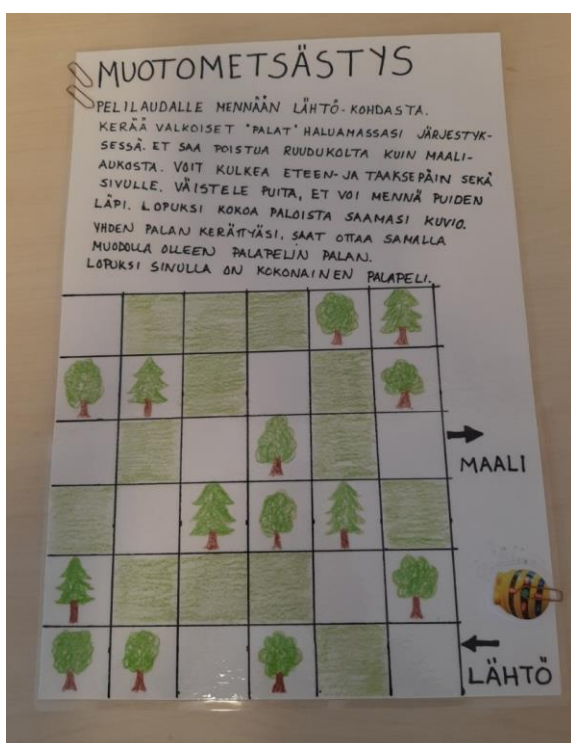 MUOTOMETSÄSTYS
PELILAUDALLE MENNÄÄN LÄHTÖ-KOHDASTA.
KERÄÄ VALKOISET "PALAT" HALUAMASSASI JÄRJESTYK-
SESSÄ. ET SAA POISTUA RUUDUKOLTA KUIN MAALI-
AUKOSTA. VOIT KULKEA ETEEN- JA TAAKSEPÄIN SEKÄ
SIVULLE. VÄISTELE PUITA, ET VOI MENNÄ PUIDEN
LÄPI. LOPUKSI KOKOA PALOISTA SAAMASI KUVIO.
YHDEN PALAN KERÄTTYÄSI, SAAT OTTAA SAMALLA
MUODOLLA OLLEEN PALAPELIN PALAN.
LOPUKSI SINULLA ON KOKONAINEN PALAPELI.
MAALI
LÄHTÖ